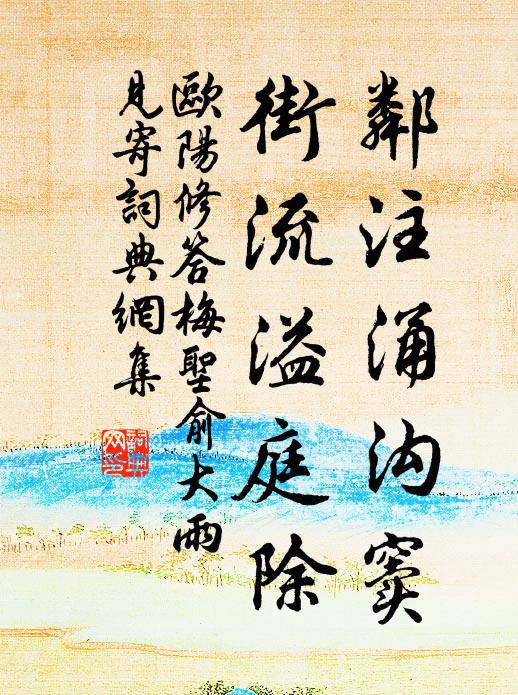 鄰注涌沟竇
街流溢庭除
歐陽修答梅聖俞大雨
見寄詞典網集